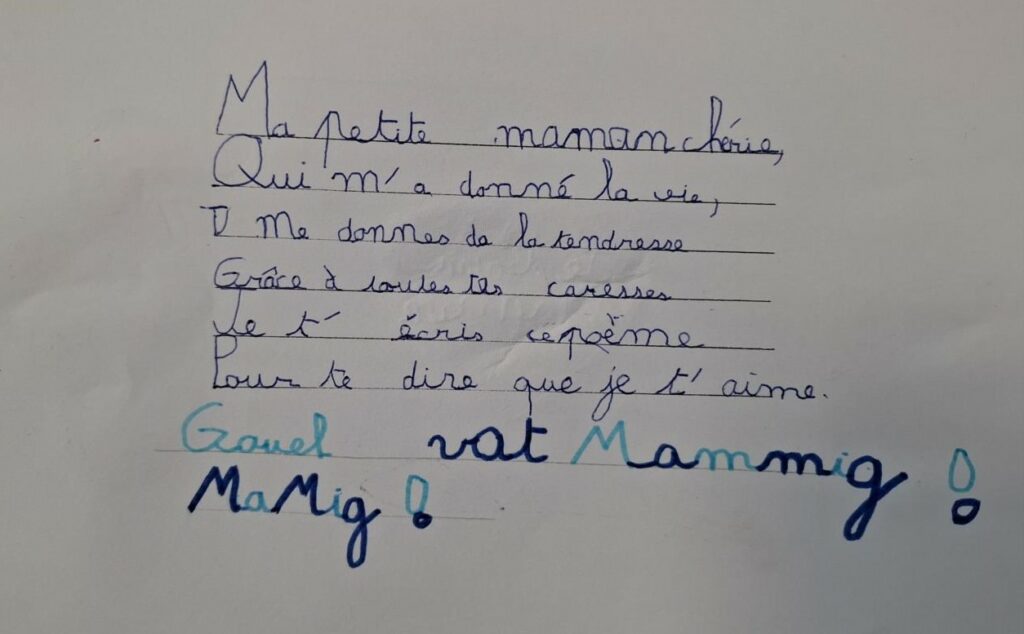 Ma petite maman chérie,
Qui m'a donné la vie,
Me donnes de la tendresse
Grâce à toutes tes caresses
Je t' écris ce poème
Pour te dire que je t'aime.
Gouel vat Mammig !
MaMig !